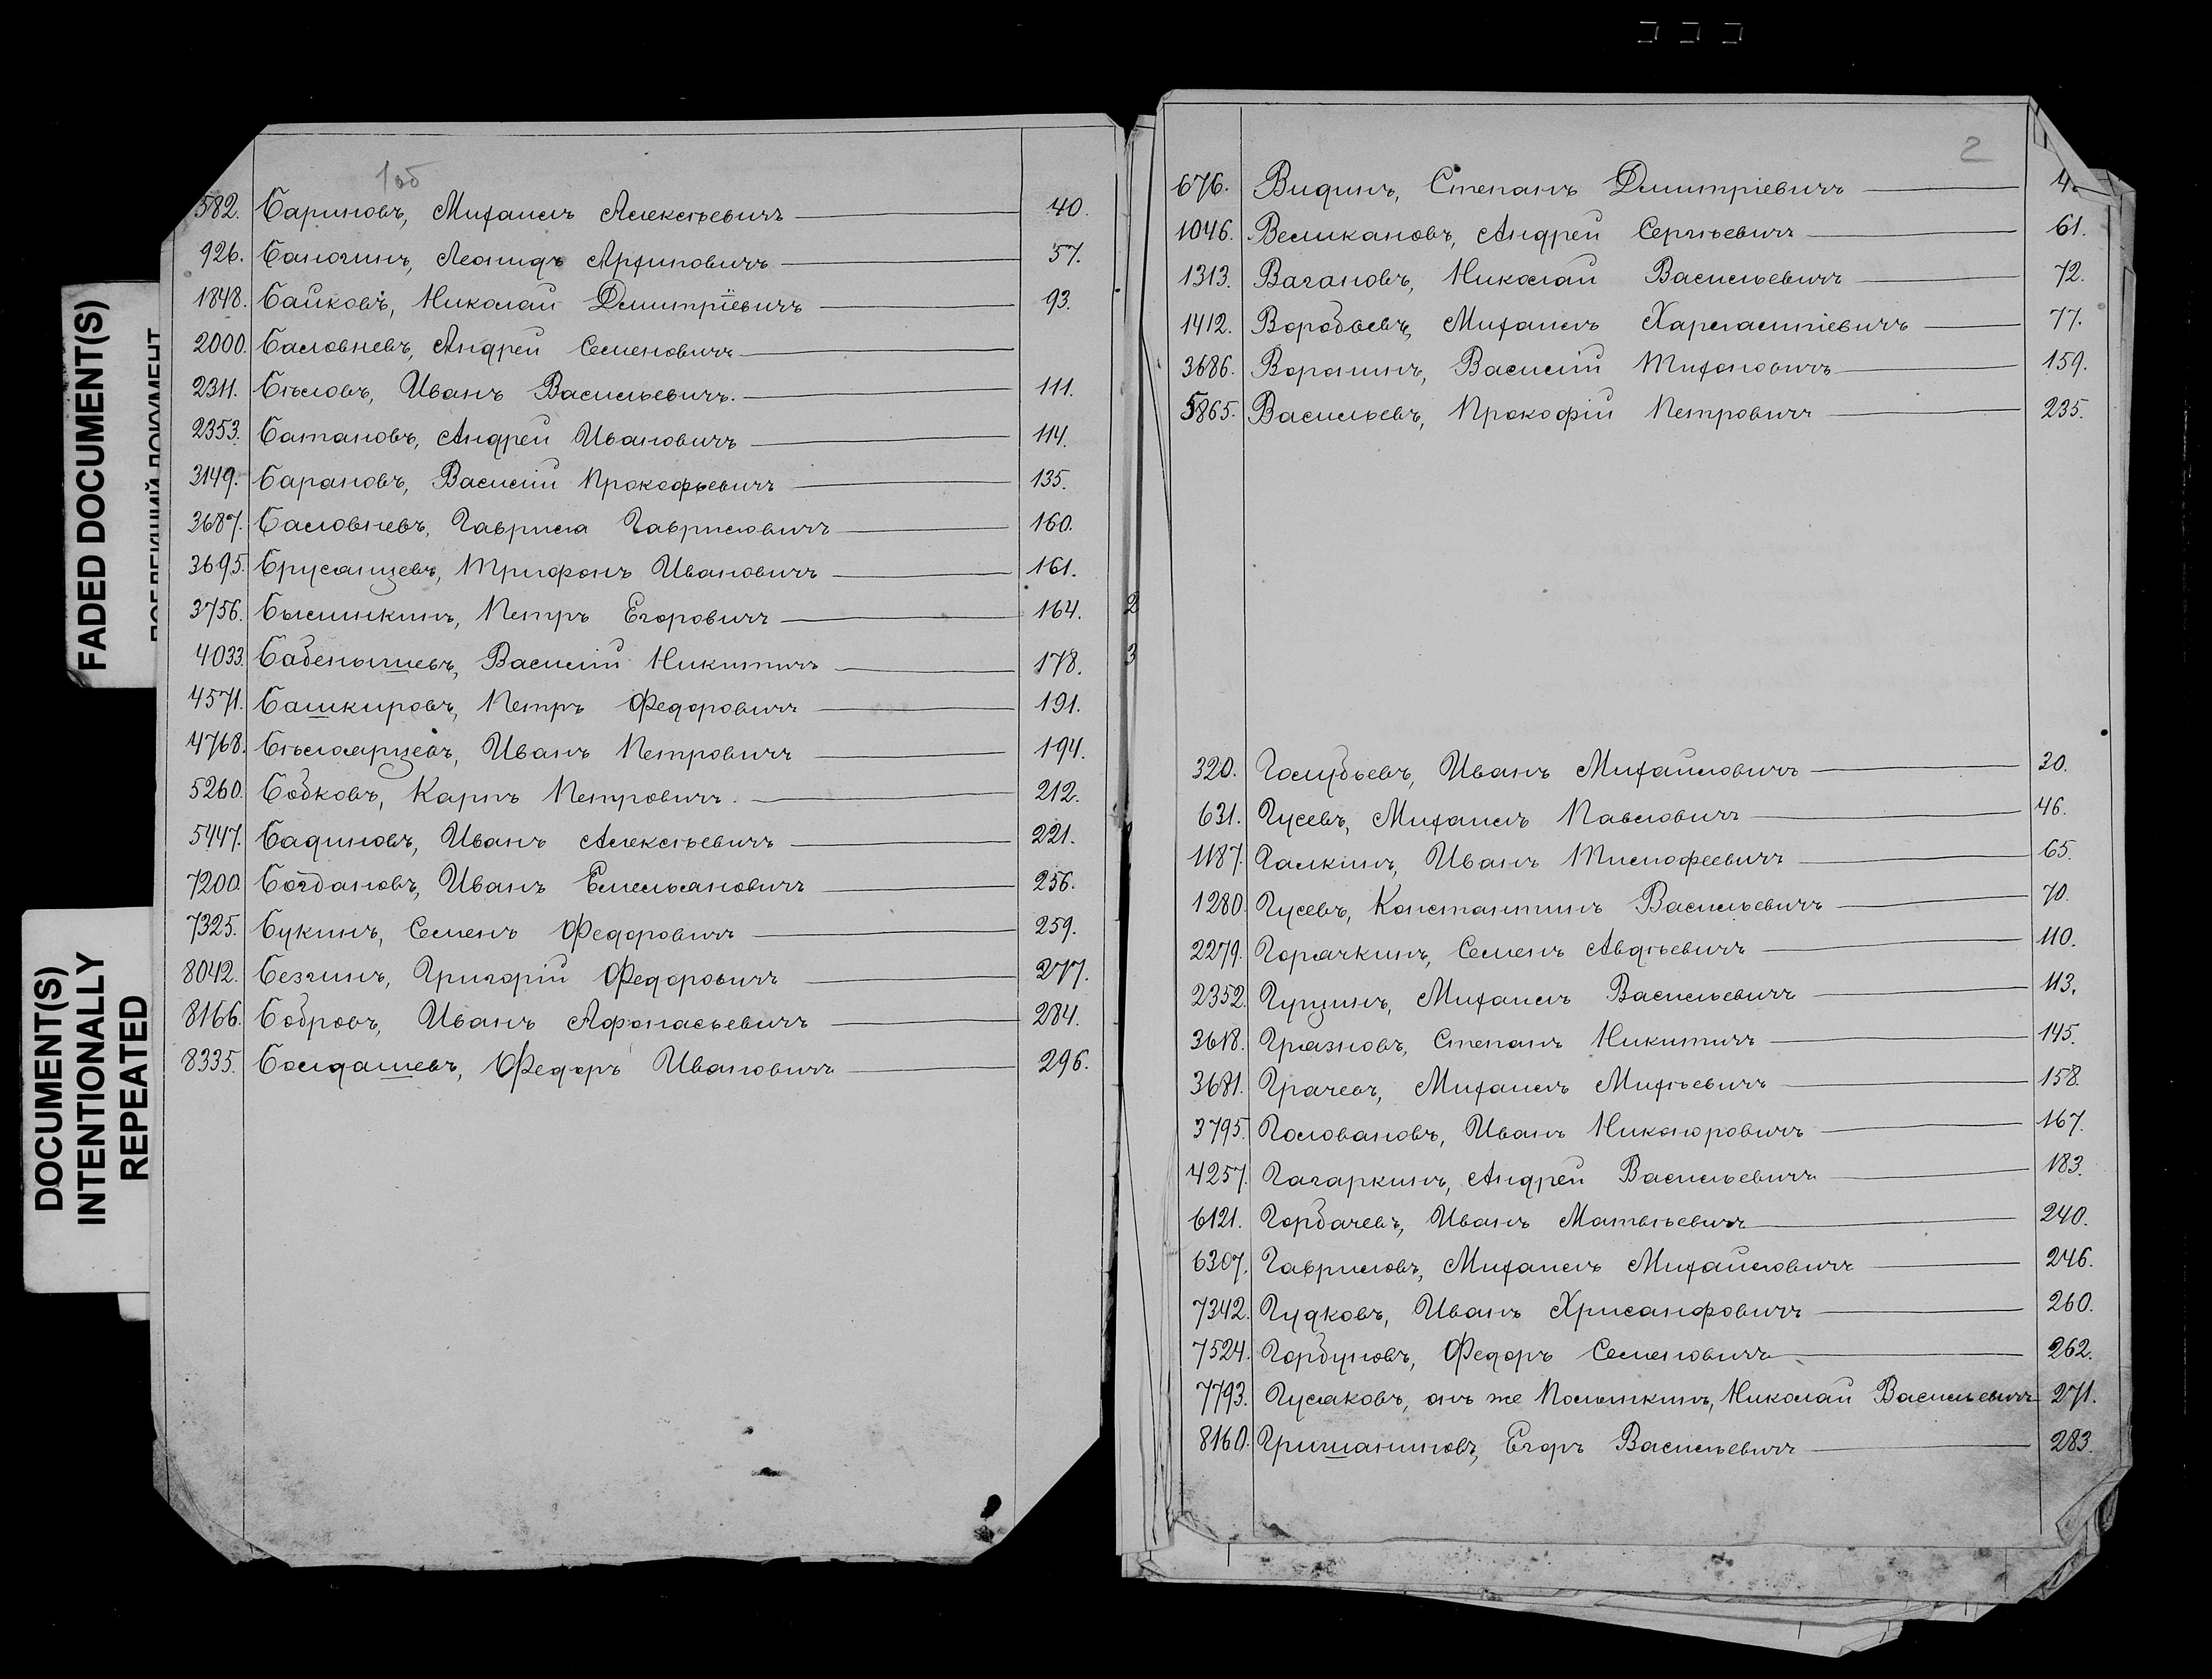 FADED DOCUMENT(S)
DOCUMENT(S)
INTENTIONALLY
REPEATED
1об
582. Бариновъ, Михаилъ Алексѣевичъ 40.
926. Баногинъ, Леонидъ Архиповичъ 57.
1848. Байковъ, Николай Дмитріевичъ 93.
2000. Баловневъ, Андрей Семеновичъ
2311. Бѣловъ, Иванъ Васильевичъ. 111.
2353. Батановъ, Андрей Ивановичъ 114.
3149. Барановъ, Василій Прокофьевичъ 135.
3687. Баловневъ, Гаврила Гавриловичъ 160.
3695. Брусянцевъ, Трифонъ Ивановичъ 161.
3756. Былинкинъ, Петръ Егоровичъ 164.
4033. Бабенышевъ, Василій Никитичъ 178.
4571. Башкировъ, Петръ Федоровичъ 191.
4768. Бѣлоярцевъ, Иванъ Петровичъ 194.
5260. Бобковъ, Карпъ Петровичъ. 212.
5447. Бадиновъ, Иванъ Алексѣевичъ 221.
7200. Богдановъ, Иванъ Емельяновичъ 256.
7325. Букинъ, Семенъ Федоровичъ 259.
8042. Безгинъ, Григорій Федоровичъ 277.
8166. Бобровъ, Иванъ Афонасьевичъ 284.
8335. Болдашевъ, Федоръ Ивановичъ 296.
2
676. Видинъ, Степанъ Дмитріевичъ
1046. Великановъ, Андрей Сергѣевичъ 61.
1313. Вагановъ, Николай Васильевичъ 72.
1412. Воробьевъ, Михаилъ Харлампіевичъ 77.
3686. Воронинъ, Василій Тихоновичъ 159.
5865. Васильевъ, Прокофій Петровичъ 235.
320. Голубьевъ, Иванъ Михайловичъ 30.
631. Гусевъ, Михаилъ Павловичъ 46.
1187. Галкинъ, Иванъ Тимофеевичъ 65.
1280. Гусевъ, Константинъ Васильевичъ 70.
2279. Горячкинъ, Семенъ Авдѣевичъ 110.
2352. Гущинъ, Михаилъ Васильевичъ 113.
3618. Грязновъ, Степанъ Никитичъ 145.
3681. Грачевъ, Михаилъ Михѣевичъ 158.
3795. Головановъ, Иванъ Никоноровичъ 167.
4257. Гагаркинъ, Андрей Васильевичъ 183.
6121. Горбачевъ, Иванъ Матвѣевичъ 240.
6307. Гавриловъ, Михаилъ Михайловичъ 246.
7342. Гудковъ, Иванъ Хрисанфовичъ 260.
7524. Горбуновъ, Федоръ Семеновичъ 262.
7793. Гусаковъ, онъ же Полынкинъ, Николай Васильевичъ 271.
8160. Гришаниновъ, Егоръ Васильевичъ 283.